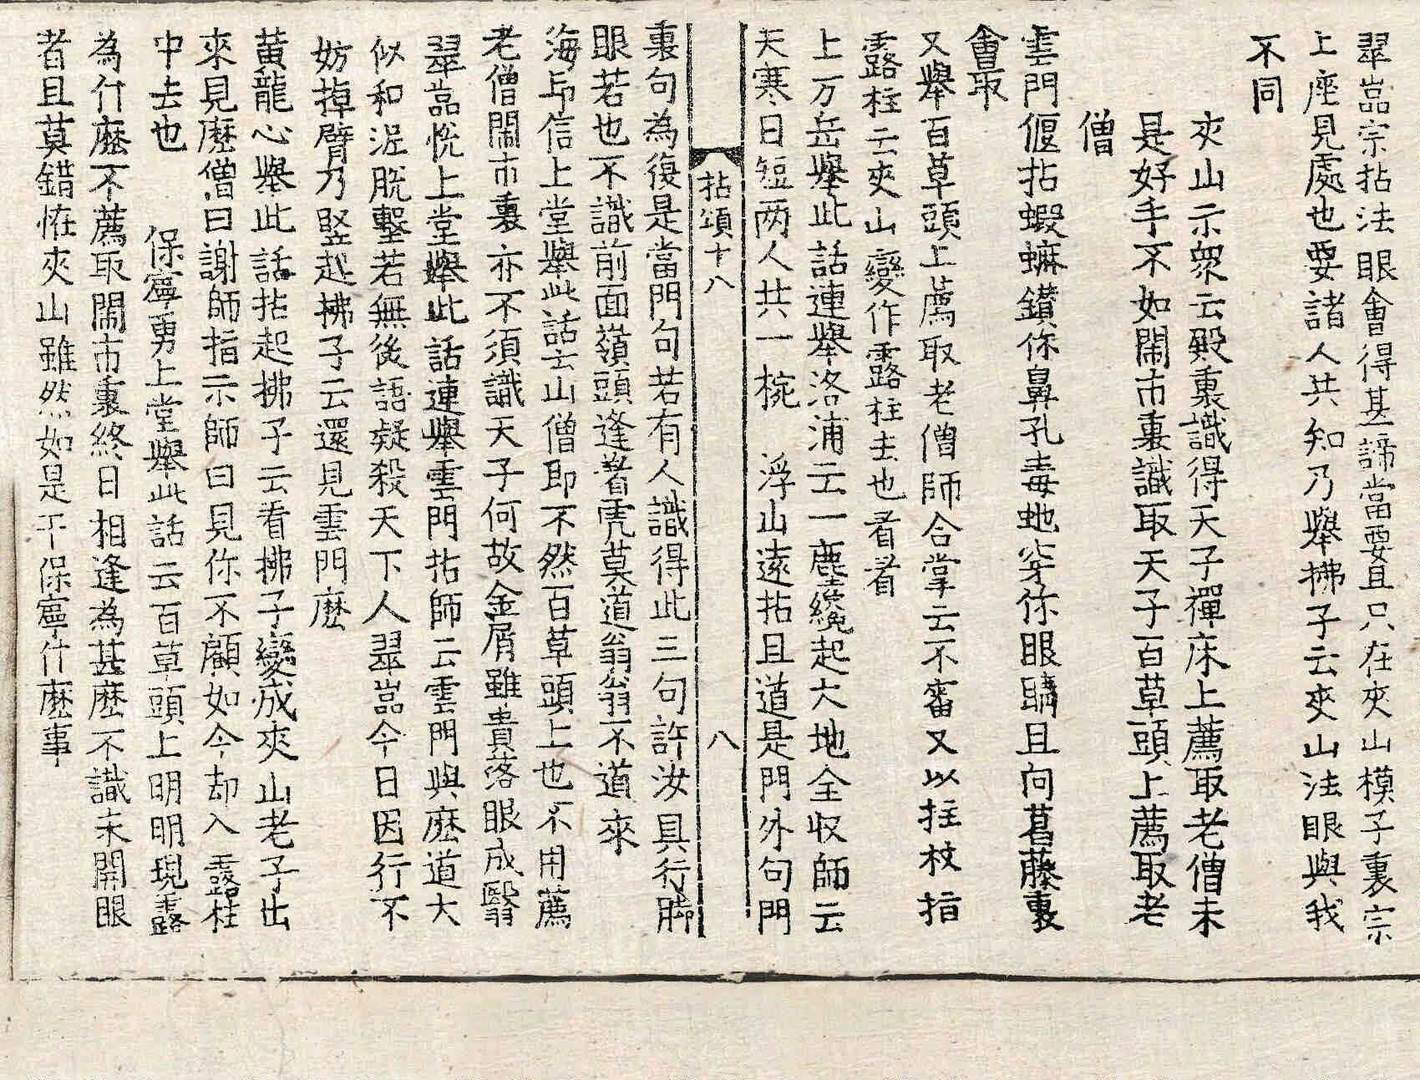 翠嵓宗拈法眼會得甚諦當要且只在夾山模子裏宗
上座見處也要諸人共知乃舉拂子云夾山法眼與我
不同
夾山示衆云殿裏識得天子禪床上薦取老僧未
是好手不如鬧市裏識取天子百草頭上薦取老
僧
雲門偃拈蝦蟆鑽你鼻孔毒虵穿你眼睛且向葛藤裏
會取
又舉百草頭上薦取老僧師合掌云不審又以拄杖指
露柱云夾山變作露柱去也看看
上方岳舉此話連舉洛浦云一塵纔起大地全収師云
天寒日短兩人共一椀 浮山遠拈且道是門外句門
拈頌十八 八
裏句為復是當門句若有人識得此三句許汝具行脚
眼若也不識前面嶺頭逢着虎莫道翁翁不道來
海印信上堂舉此話云山僧即不然百草頭上也不用薦
老僧鬧市裏亦不須識天子何故金屑雖貴落眼成翳
翠嵓悅上堂舉此話連舉雲門拈師云雲門與麽道大
似和泥脫墼若無後語疑殺天下人翠嵓今日因行不
妨掉臂乃竪起拂子云還見雲門麽
黃龍心舉此話拈起拂子云看拂子變成夾山老子出
來見麽僧曰謝師指示師曰見你不顧如今却入露柱
中去也 保寧勇上堂舉此話云百草頭上明明現露
為什麽不薦取鬧市裏終日相逢為甚麽不識未開眼
者且莫錯恠夾山雖然如是干保寧什麽事